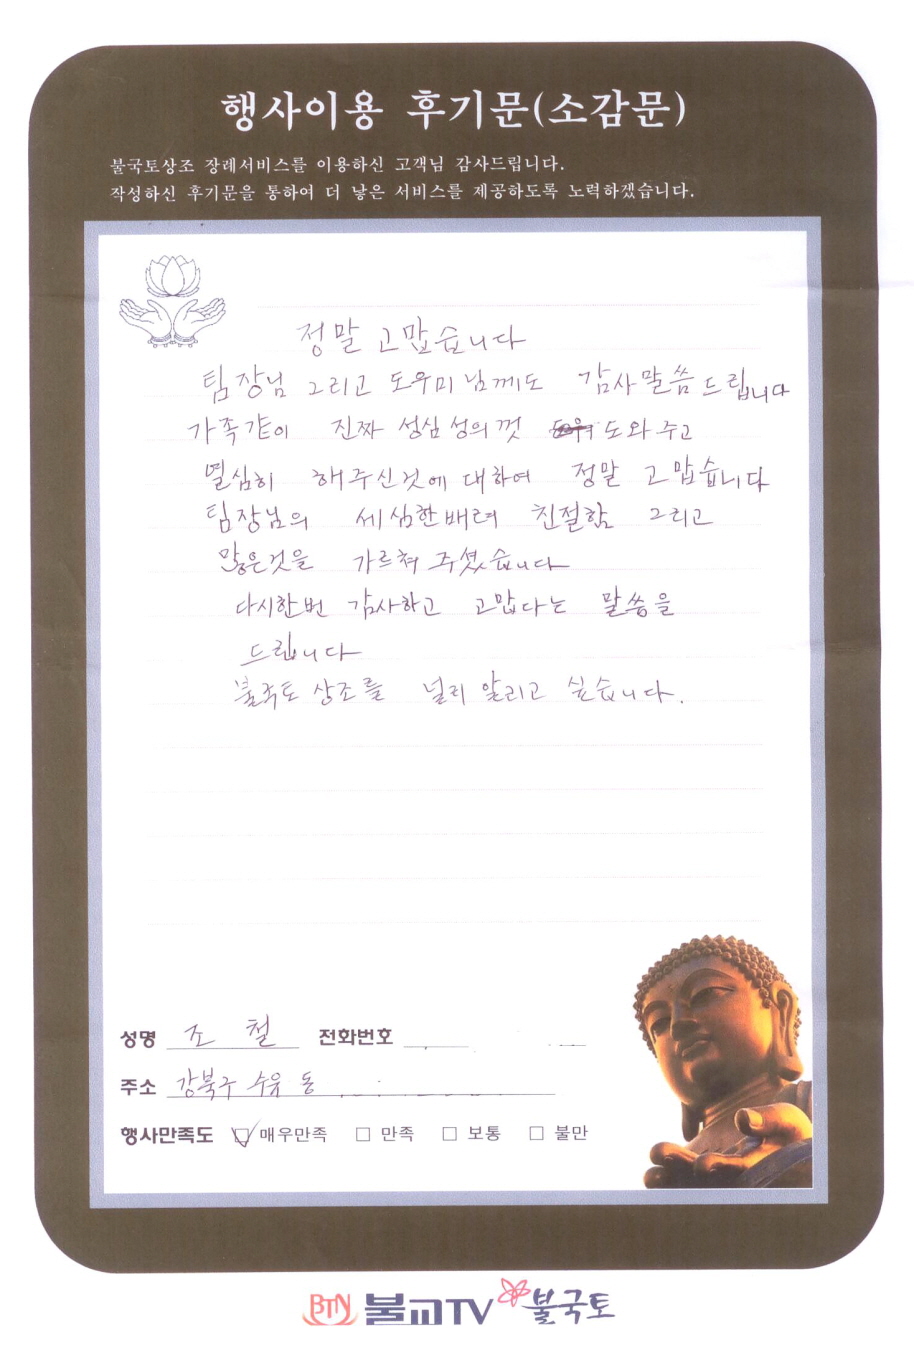 행사이용 후기문(소감문)
불국토상조 장례서비스를 이용하신 고객님 감사드립니다.
작성하신 후기문을 통하여 더 낳은 서비스를 제공하도록 노력하겠습니다.
정말 고맙습니다
팀장님 그리고 도우미님께도 감사말씀드립니다
가족같이 진짜 성심성의껏 도와주고
열심히 해주신것에 대하여 정말 고맙습니다
팀장님의 세심한배려 친절함 그리고
많은것을 가르쳐 주셨습니다
다시한번 감사하고 고맙다는 말씀을
드립니다
불국토 상조를 널리 알리고 싶습니다.
성명 조 철 전화번호
주소 강북구 수유동
행사만족도 ☑ 매우만족 □ 만족 □ 보통 □ 불만
BTN 불교TV 불국토